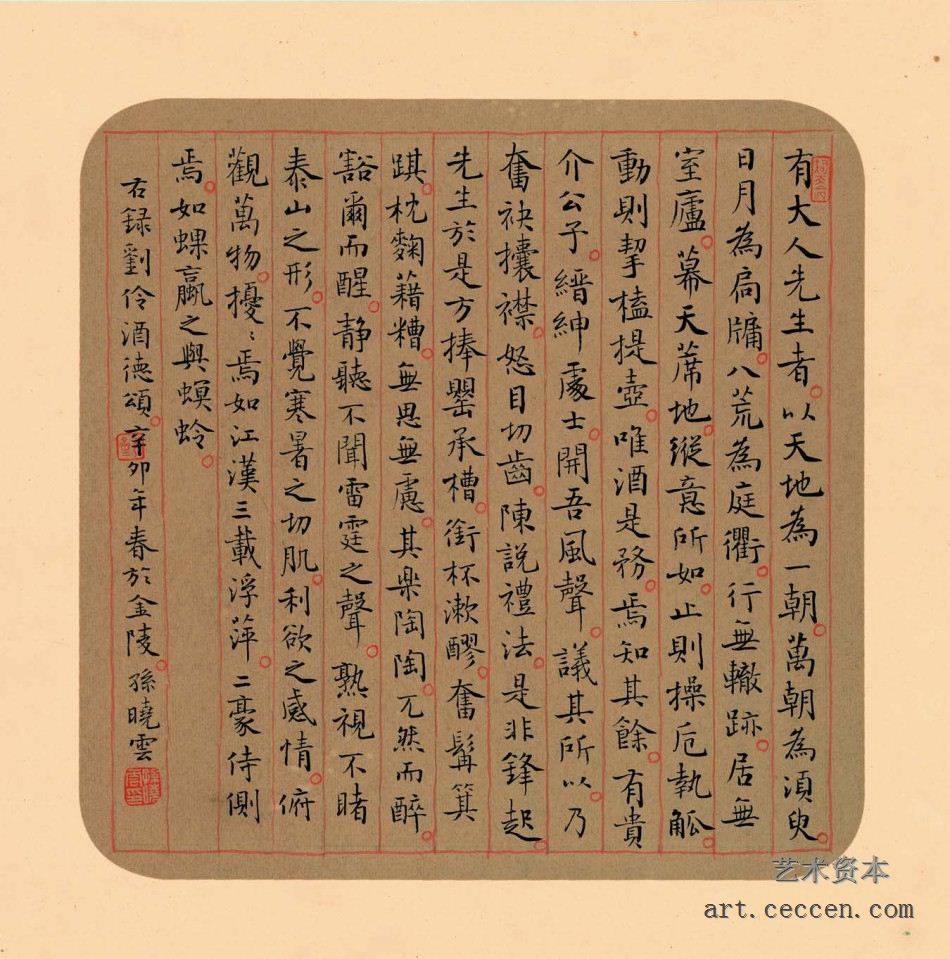 有大人先生者。以天地為一朝。萬朝為湏臾。
日月為扃牖。八荒為庭衢。行無轍跡。居無
室廬。幕天蓆地。縱意所如。止則操卮執觚。
動則挈榼提壺。唯酒是務。焉知其餘。有貴
介公子。縉紳處士。開吾風聲。議其所以。乃
奮袂攘襟。怒目切齒。陳說禮法。是非鋒起。
先生於是方捧罌承槽。銜杯漱醪。奮髯箕
踑。枕麴藉糟。無思無慮。其樂陶陶。兀然而醉。
豁爾而醒。静聽不聞雷霆之聲。熟視不睹
泰山之形。不覺寒暑之切肌。利欲之感情。俯
觀萬物。擾〻焉如江漢三載浮萍。二豪侍側
焉。如蜾蠃之與螟蛉。
右録劉伶酒德頌。辛卯年春於金陵。孫曉雲
艺术资本
art.ceccen.com